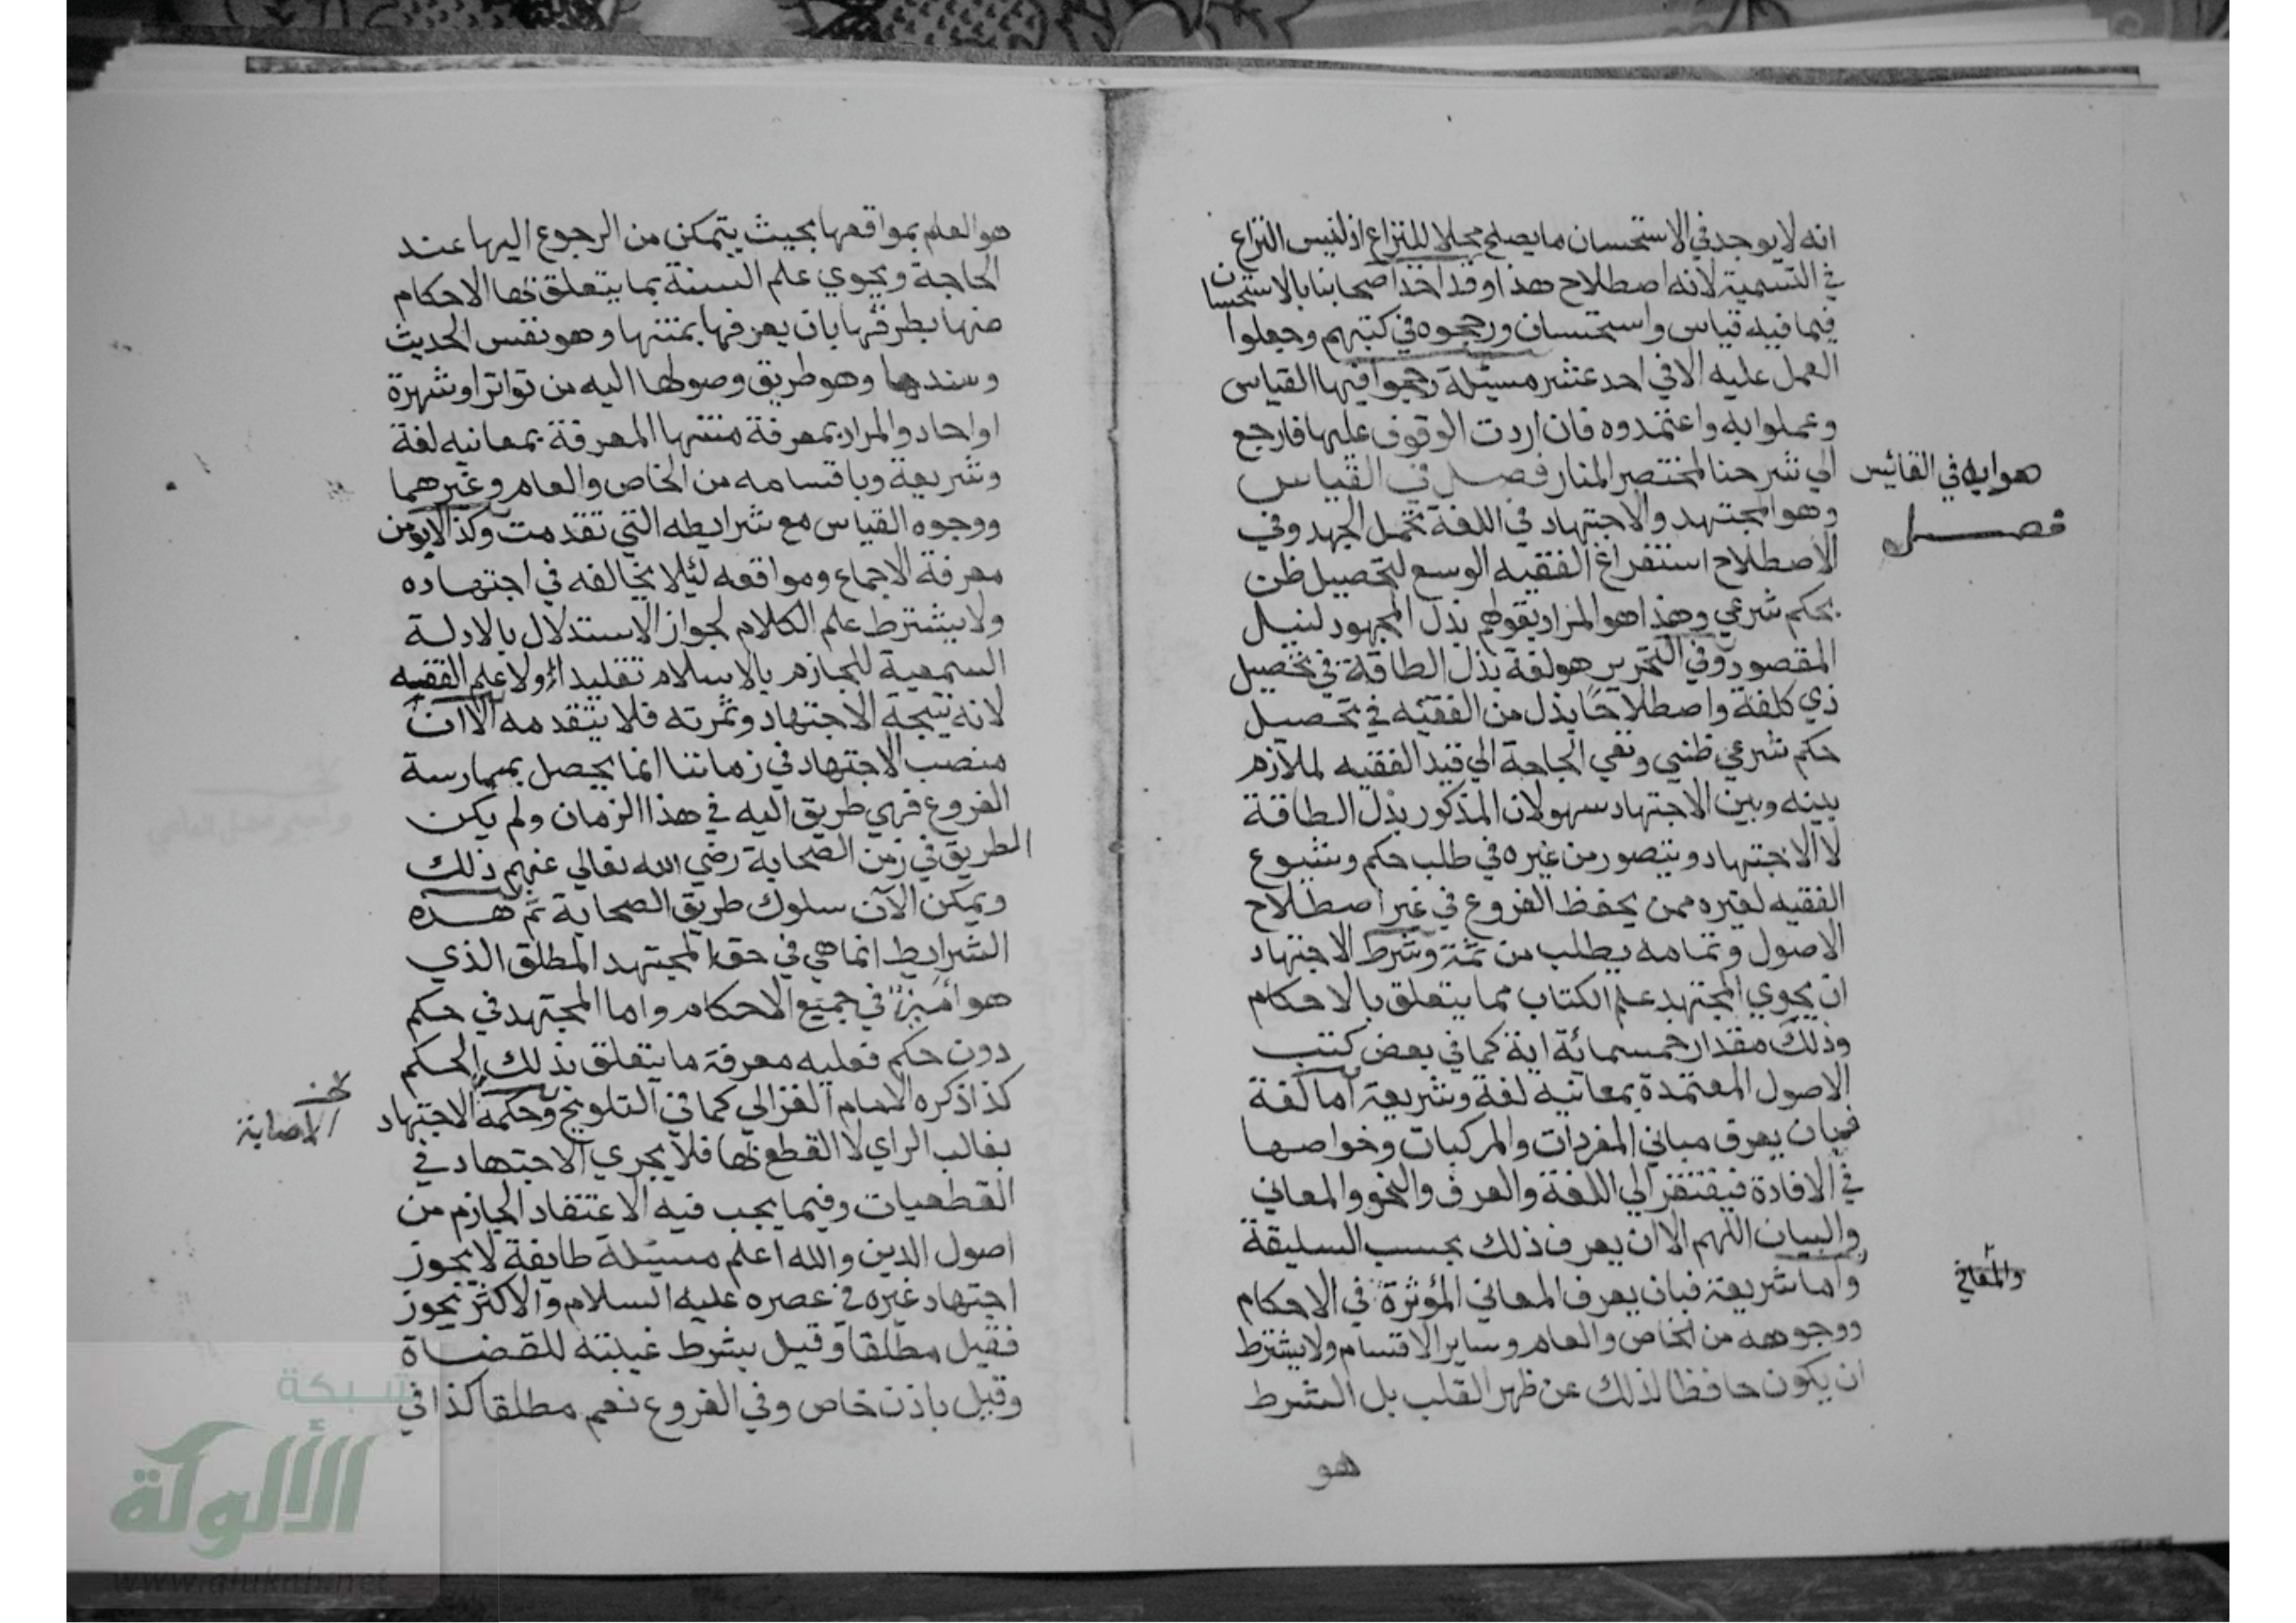 انه لا يوجد في الاستحسان ما يصلح محلا للنزاع اذ ليس النزاع
في التسمية لانه اصطلاح هذا وقد اخذ اصحابنا بالاستحسان
فيما فيه قياس واستحسان ورجحوه في كتبهم وجعلوا
العمل عليه الا في احد عشر مسئلة رجحوا فيها القياس
وعملوا به واعتمدوه فان اردت الوقوف عليها فارجع
الي شرحنا لمختصر المنار فصل في القياس
هوابه في القائيس
فصل
وهو المجتهد والاجتهاد في اللغة تحمل الجهد وفي
الاصطلاح استفراغ الفقيه الوسع لتحصيل ظن
بحكم شرعي وهذا هو المراد بقولهم بذل المجهود لنيل
المقصود وفي التحرير هو لغة بذل الطاقة في تحصيل
ذي كلفة واصطلاحا بذل من الفقيه في تحصيل
حكم شرعي ظني ونفي الحاجة الي قيد الفقيه لملازم
بينه وبين الاجتهاد سهو لان المذكور بذل الطاقة
لا الاجتهاد ويتصور من غيره في طلب حكم وشيوع
الفقيه لغيره ممن يحفظ الفروع في غير اصطلاح
الاصول وتمامه يطلب من ثمة وشرط الاجتهاد
ان يحوي المجتهد علم الكتاب مما يتعلق بالاحكام
وذلك مقدار خمسمائة اية كما في بعض كتب
الاصول المعتمدة بمعانيه لغة وشريعة اما لغة
فبان يعرف مباني المفردات والمركبات وخواصها
في الافادة فيفتقر الي اللغة والصرف والنحو والمعاني
والبيان اللهم الا ان يعرف ذلك بحسب السليقة
واما شريعة فبان يعرف المعاني المؤثرة في الاحكام
والمعاني
ووجوهه من الخاص والعام وساير الاقسام ولا يشترط
ان يكون حافظا لذلك عن ظهر القلب بل الشرط
هو
هو العلم بمواقعها بحيث يتمكن من الرجوع اليها عند
الحاجة ويحوي علم السنة بما يتعلق بها الاحكام
منها بطرقها بان يعرفها بمتنها وهو نفس الحديث
وسندها وهو طريق وصولها اليه من تواتر او شهرة
او احاد والمراد بمعرفة متنها المعرفة بمعانيه لغة
وشريعة وباقسامه من الخاص والعام وغيرهما
ووجوه القياس مع شرايطه التي تقدمت وكذا لابد من
معرفة الاجماع ومواقعه لئلا يخالفه في اجتهاده
ولا يشترط علم الكلام لجواز الاستدلال بالادلة
السمعية للجازم بالاسلام تقليدا ولا علم الفقيه
لانه نتيجة الاجتهاد وثمرته فلا يتقدمه الا ان
منصب الاجتهاد في زماننا انما يحصل بممارسة
الفروع فهي طريق اليه في هذا الزمان ولم يكن
الطريق في زمن الصحابة رضي الله تعالي عنهم ذلك
ويمكن الآن سلوك طريق الصحابة ثم هذه
الشرايط انما هي في حق المجتهد المطلق الذي
هو في جميع الاحكام واما المجتهد في حكم
دون حكم فعليه معرفة ما يتعلق بذلك الحكم
كذا ذكره الامام الغزالي كما في التلويح وحكمه الاجتهاد
الاصابة
بغالب الراي لا القطع بها فلا يجري الاجتهاد في
القطعيات وفيما يجب فيه الاعتقاد الجازم من
اصول الدين والله اعلم مسئلة طايفة لا يجوز
اجتهاد غيره في عصره عليه السلام والاكثر يجوز
فقيل مطلقا وقيل بشرط غيبته للقضاة
وقيل باذن خاص وفي الفروع نعم مطلقا كذا في
شبكة
الألوكة
www.alukah.net